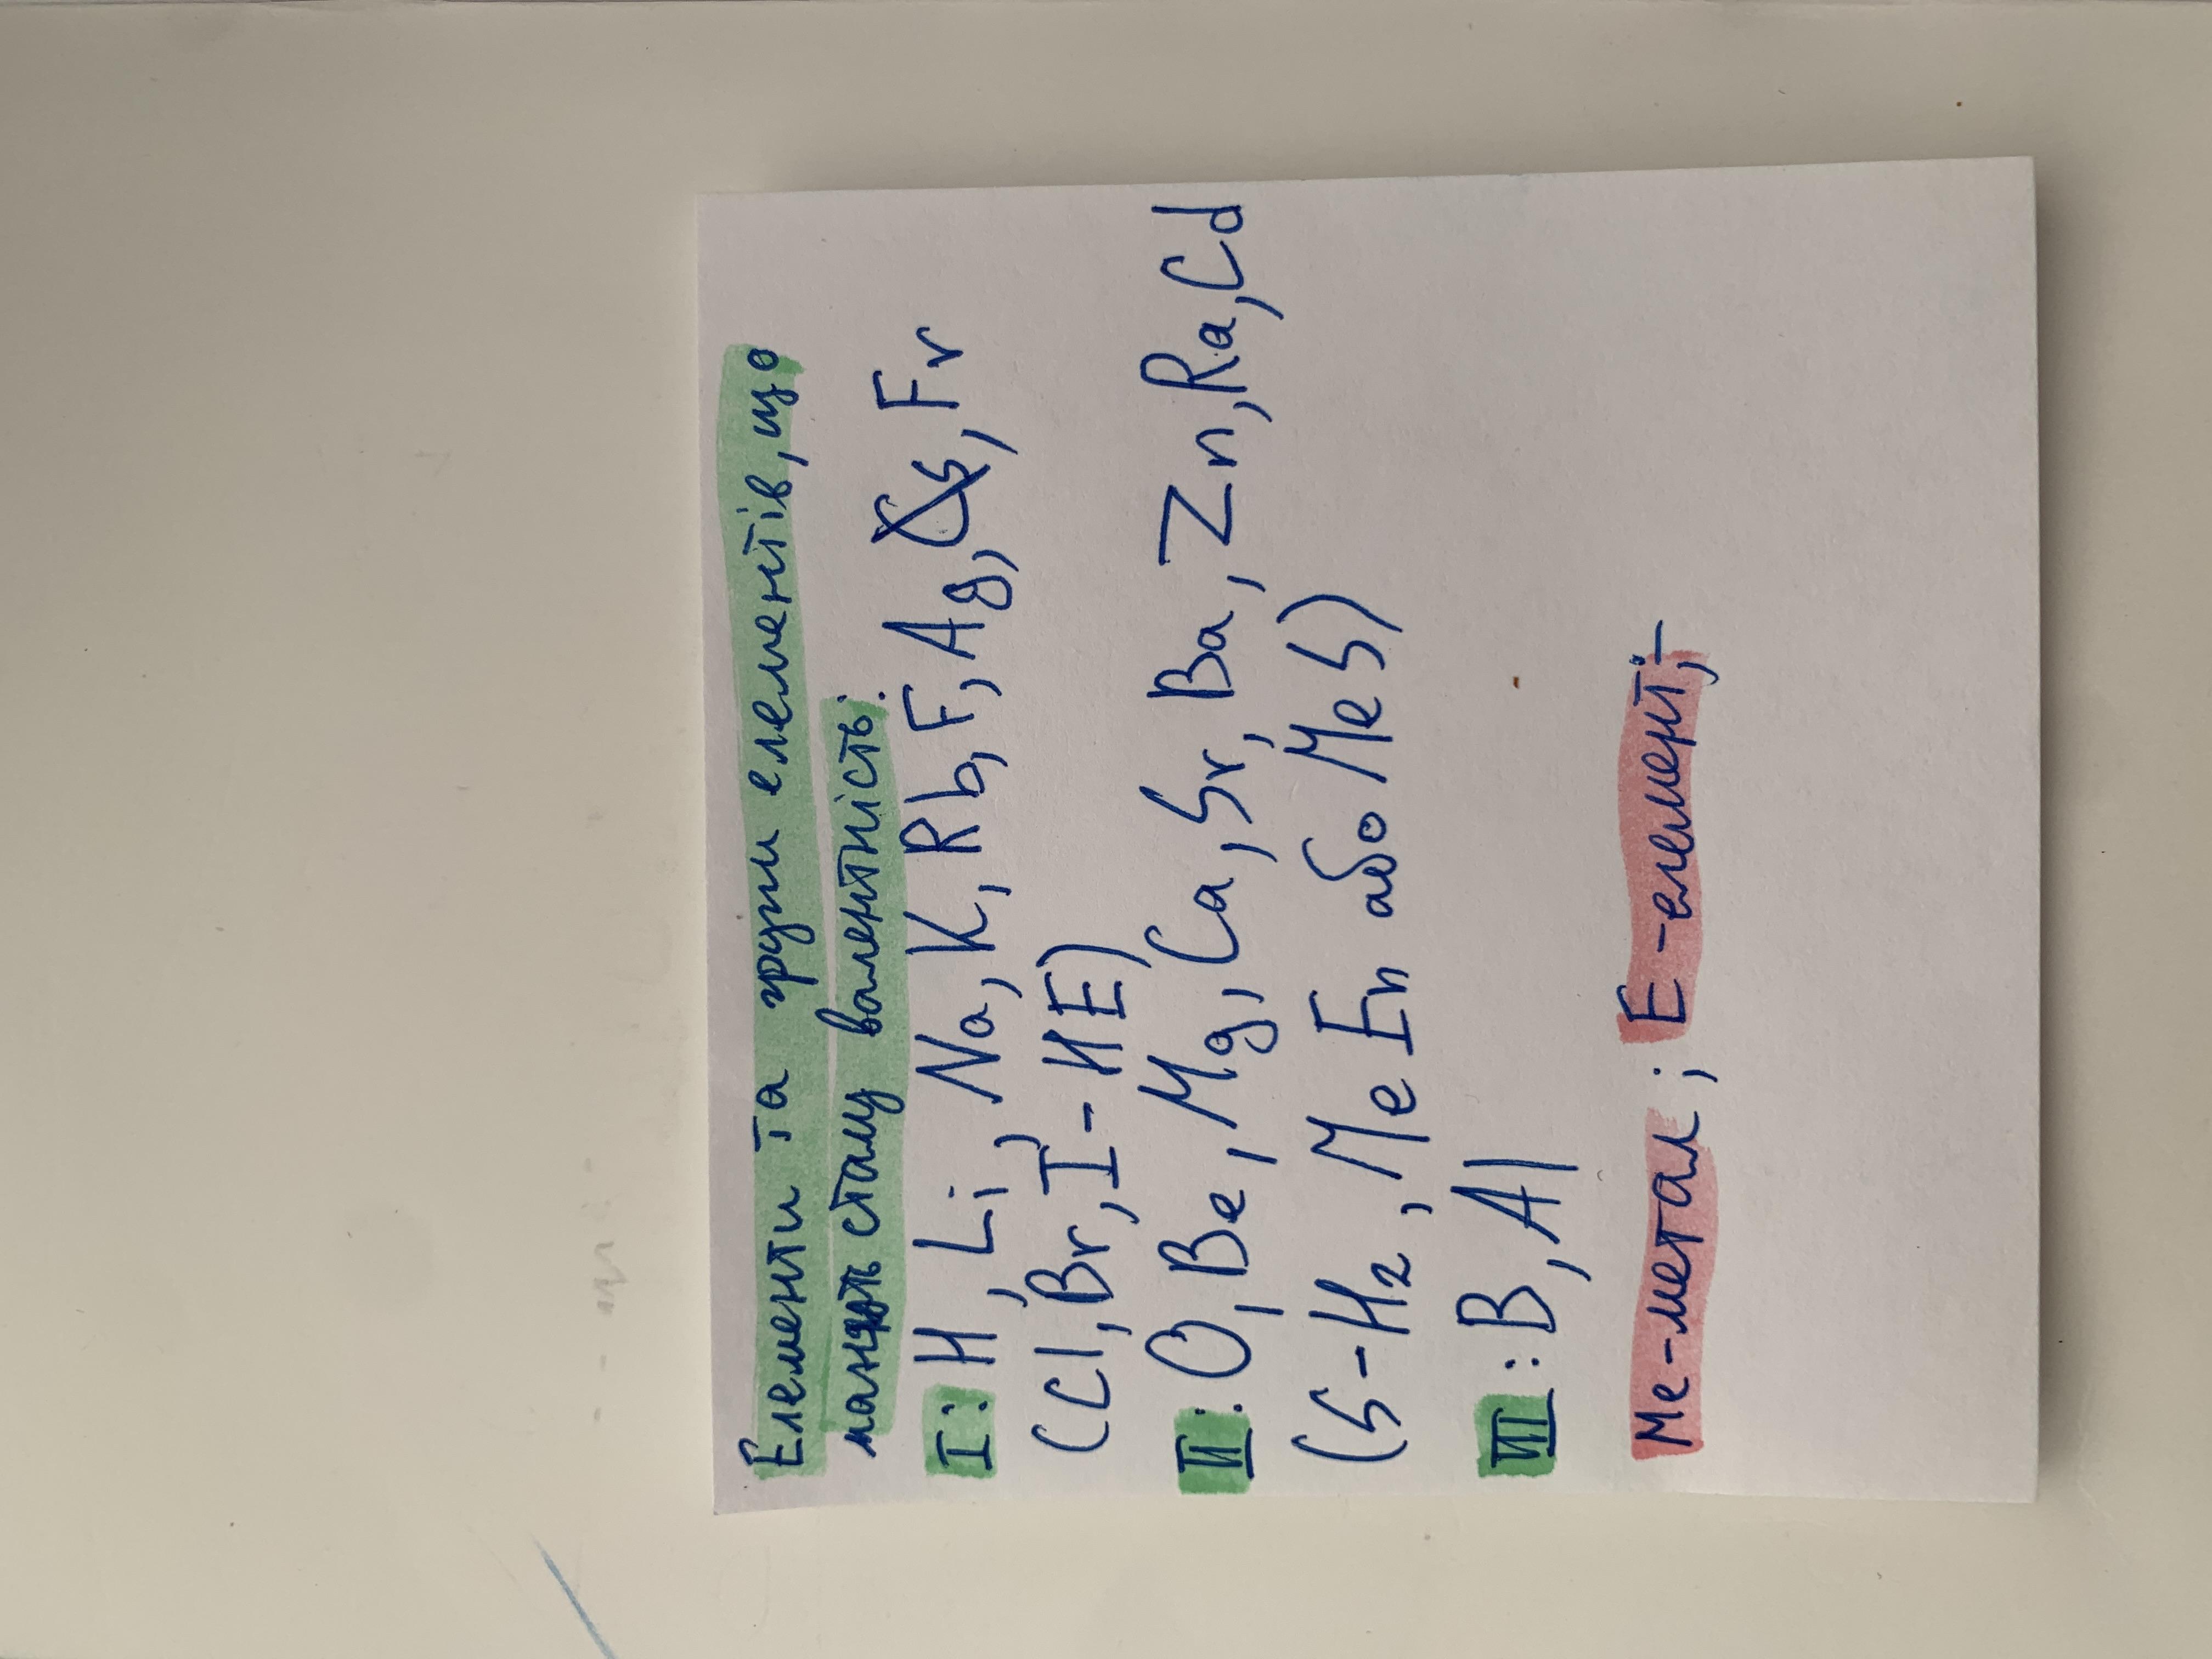 Елементи та групи елементів, що
мають сталу валентність:
I: H, Li, Na, K, Rb, F, Ag, Cs, Fr
(Cl, Br, I - HE)
II: O, Be, Mg, Ca, Sr, Ba, Zn, Ra, Cd
(S-H₂, Me En або MeS)
III: B, Al
Ме-метал; Е-елемент;-